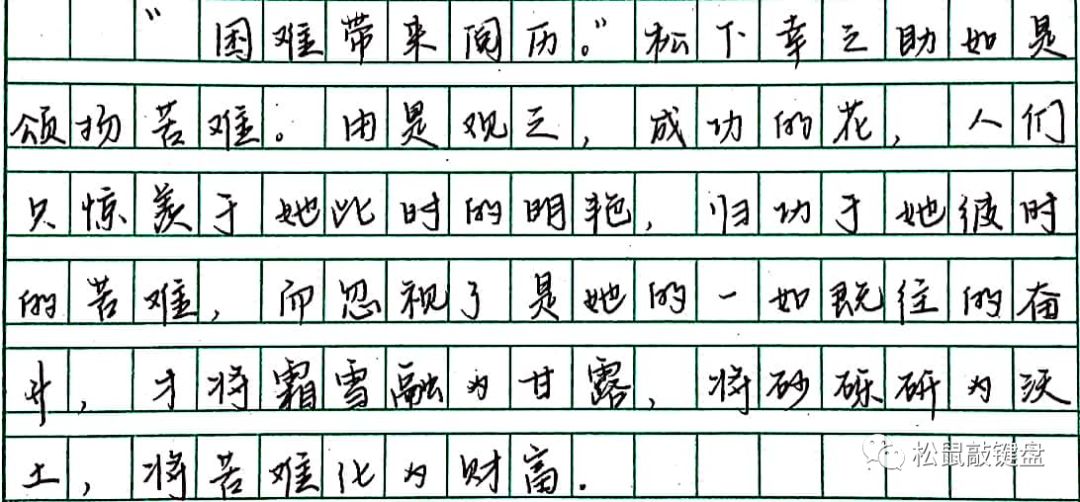 “困难带来阅历。”松下幸之助如是
颂扬苦难。由是观之，成功的花，人们
只惊羡于她此时的明艳，归功于她彼时
的苦难，而忽视了是她的一如既往的奋
斗，才将霜雪融为甘露，将砂砾研为沃
土，将苦难化为财富.
松鼠敲键盘